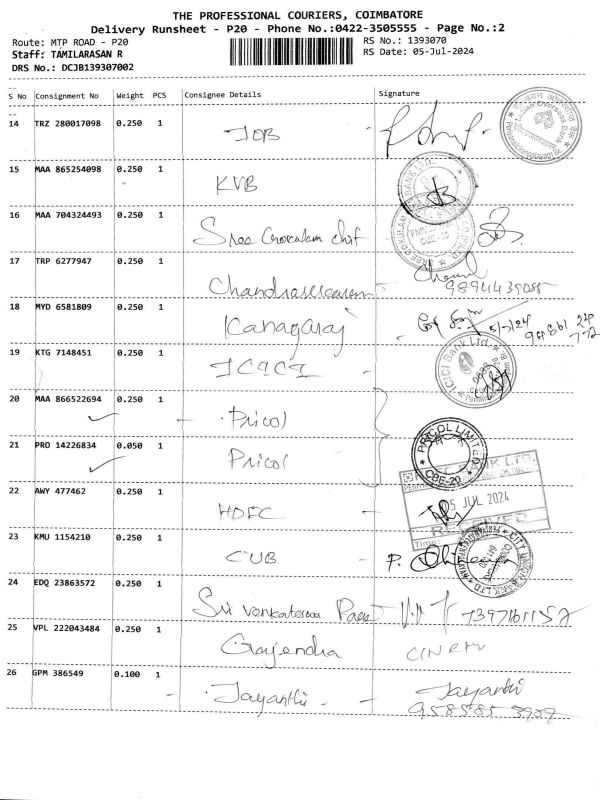 THE PROFESSIONAL COURIERS, COIMBATORE
Delivery Runsheet - P20 - Phone No.:0422-3505555 - Page No.:2
Route: MTP ROAD - P20
RS No.: 1393070
Staff: TAMILARASAN R
RS Date: 05-Jul-2024
DRS No.: DCJB139307002
S No Consignment No Weight PCS Consignee Details Signature
14 TRZ 280017098 0.250 1 IOB
15 MAA 865254098 0.250 1 KVB
16 MAA 704324493 0.250 1 Sree Gokulam chit
17 TRP 6277947 0.250 1 Chandrasekaran
18 MYD 6581809 0.250 1 Kanagaraj 5/7/24
19 KTG 7148451 0.250 1 ICICI
ICICI Bank Ltd.
20 MAA 866522694 0.250 1 Pricol
21 PRO 14226834 0.050 1 Pricol
PRICOL LIMITED
CBE-20
22 AWY 477462 0.250 1 HDFC
05 JUL 2024
RECEIVED
Time:
23 KMU 1154210 0.250 1 CUB
24 EDQ 23863572 0.250 1 Sri Venkateswara
25 VPL 222043484 0.250 1 Gajendra
26 GPM 386549 0.100 1 Jayanthi Jayanthi